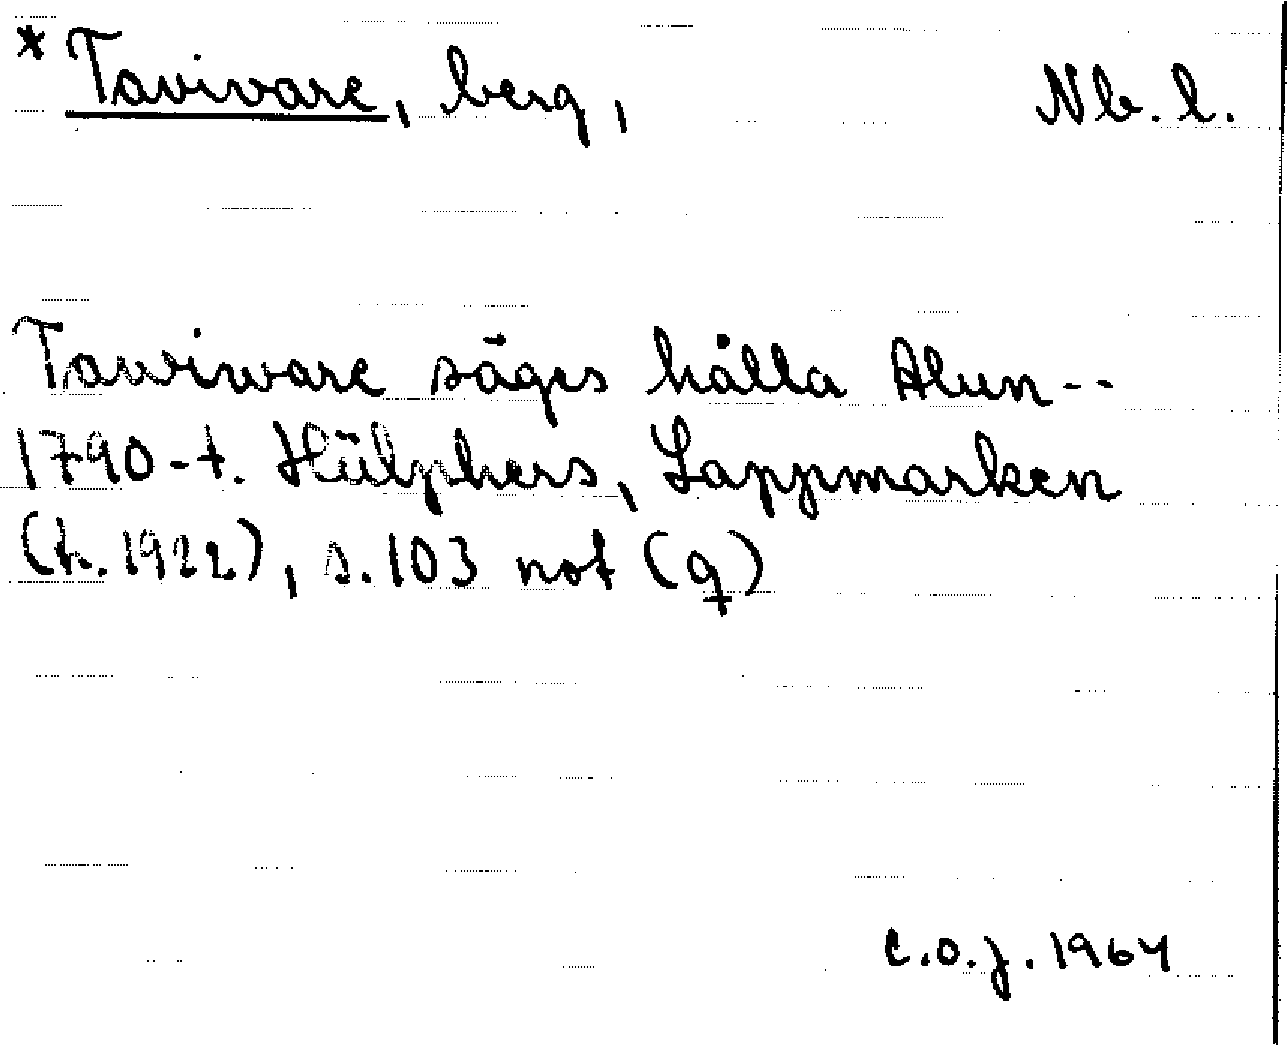 * Tavivare, berg, Nb. l.
Tawiware säges hålla Alun--
1790-t. Hülphers, Lappmarken
(tr. 1922), s. 103 not (q)
C.O.J. 1964